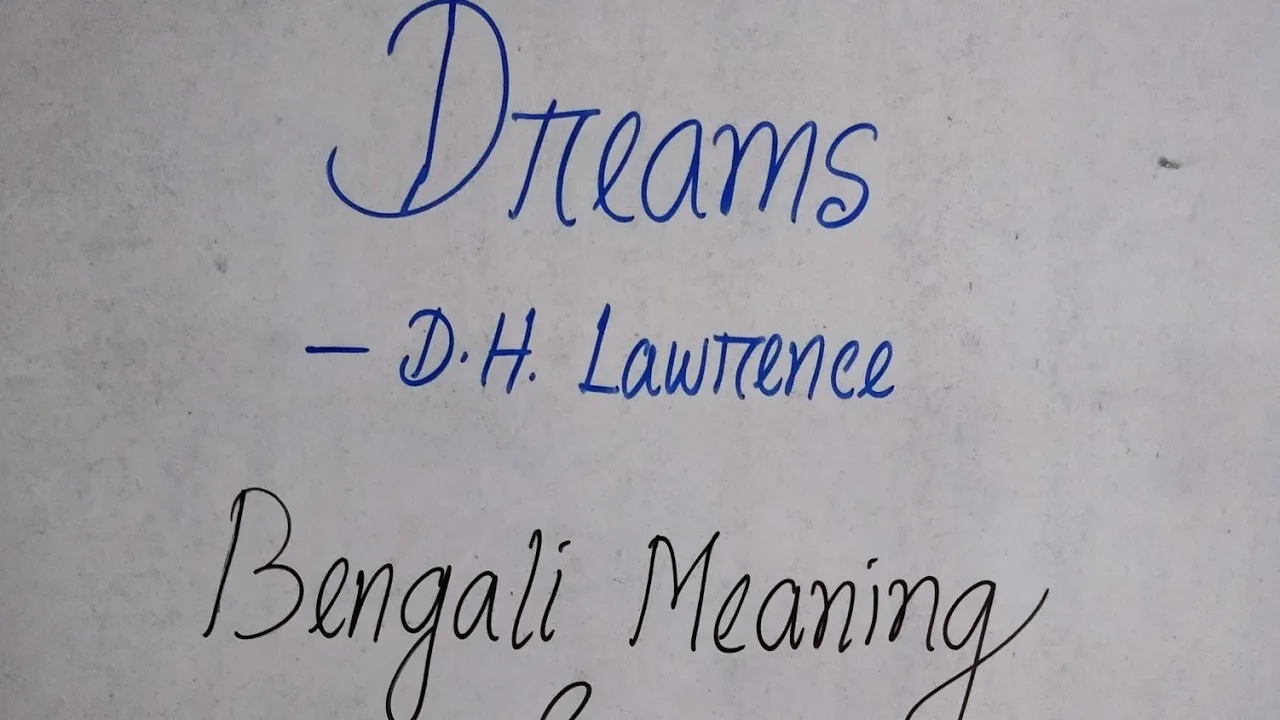 Dreams
– D.H. Lawrence
Bengali Meaning